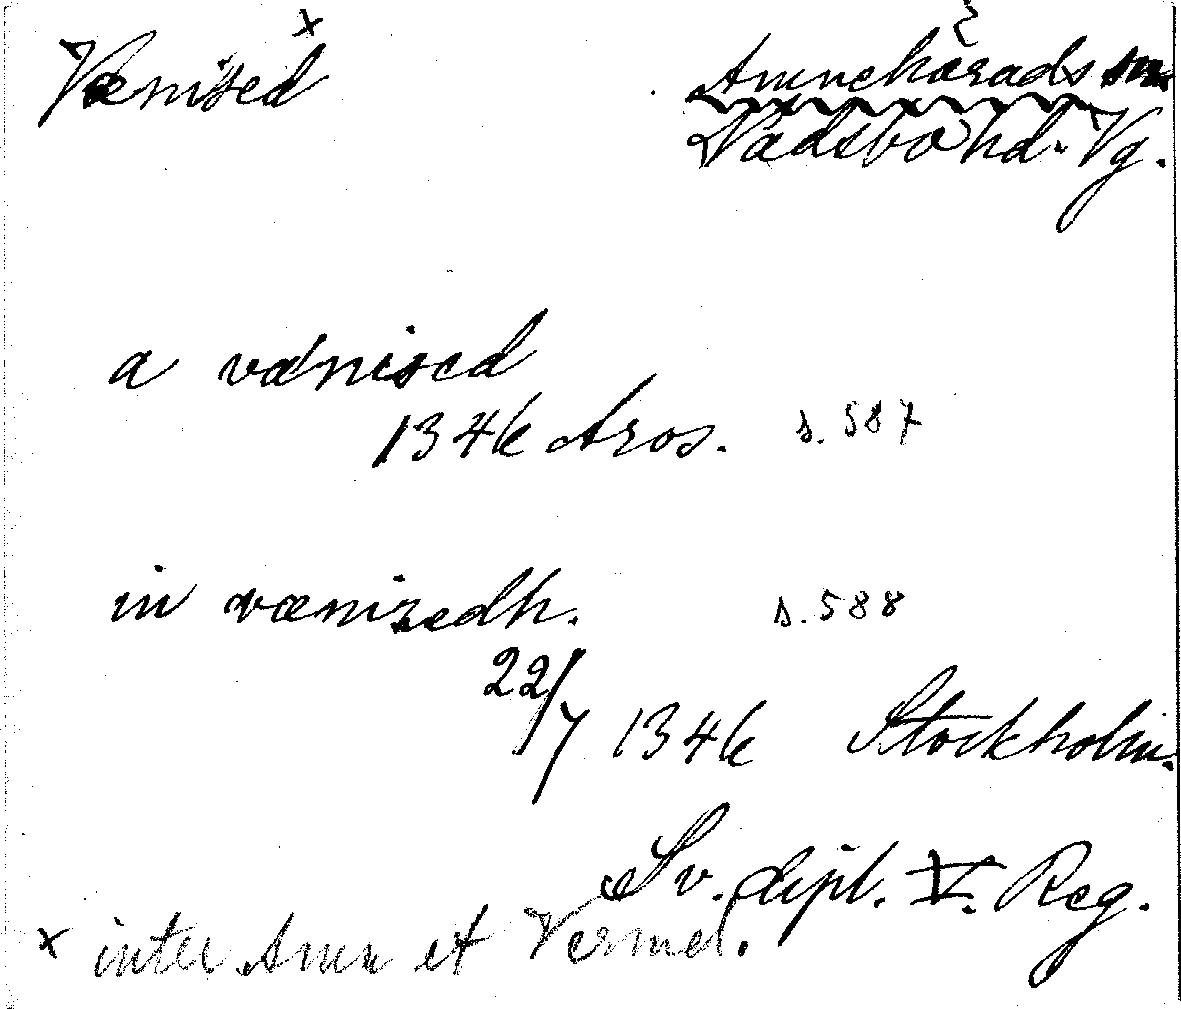 Vænised x
Amnehärads sn
Vadsbo hd. Vg.
a vænised
1346 Aros. s. 587
in vænizedh. s. 588
22/7 1346 Stockholm.
Sv. dipl. V. Reg.
x inter Amn et Vermel.